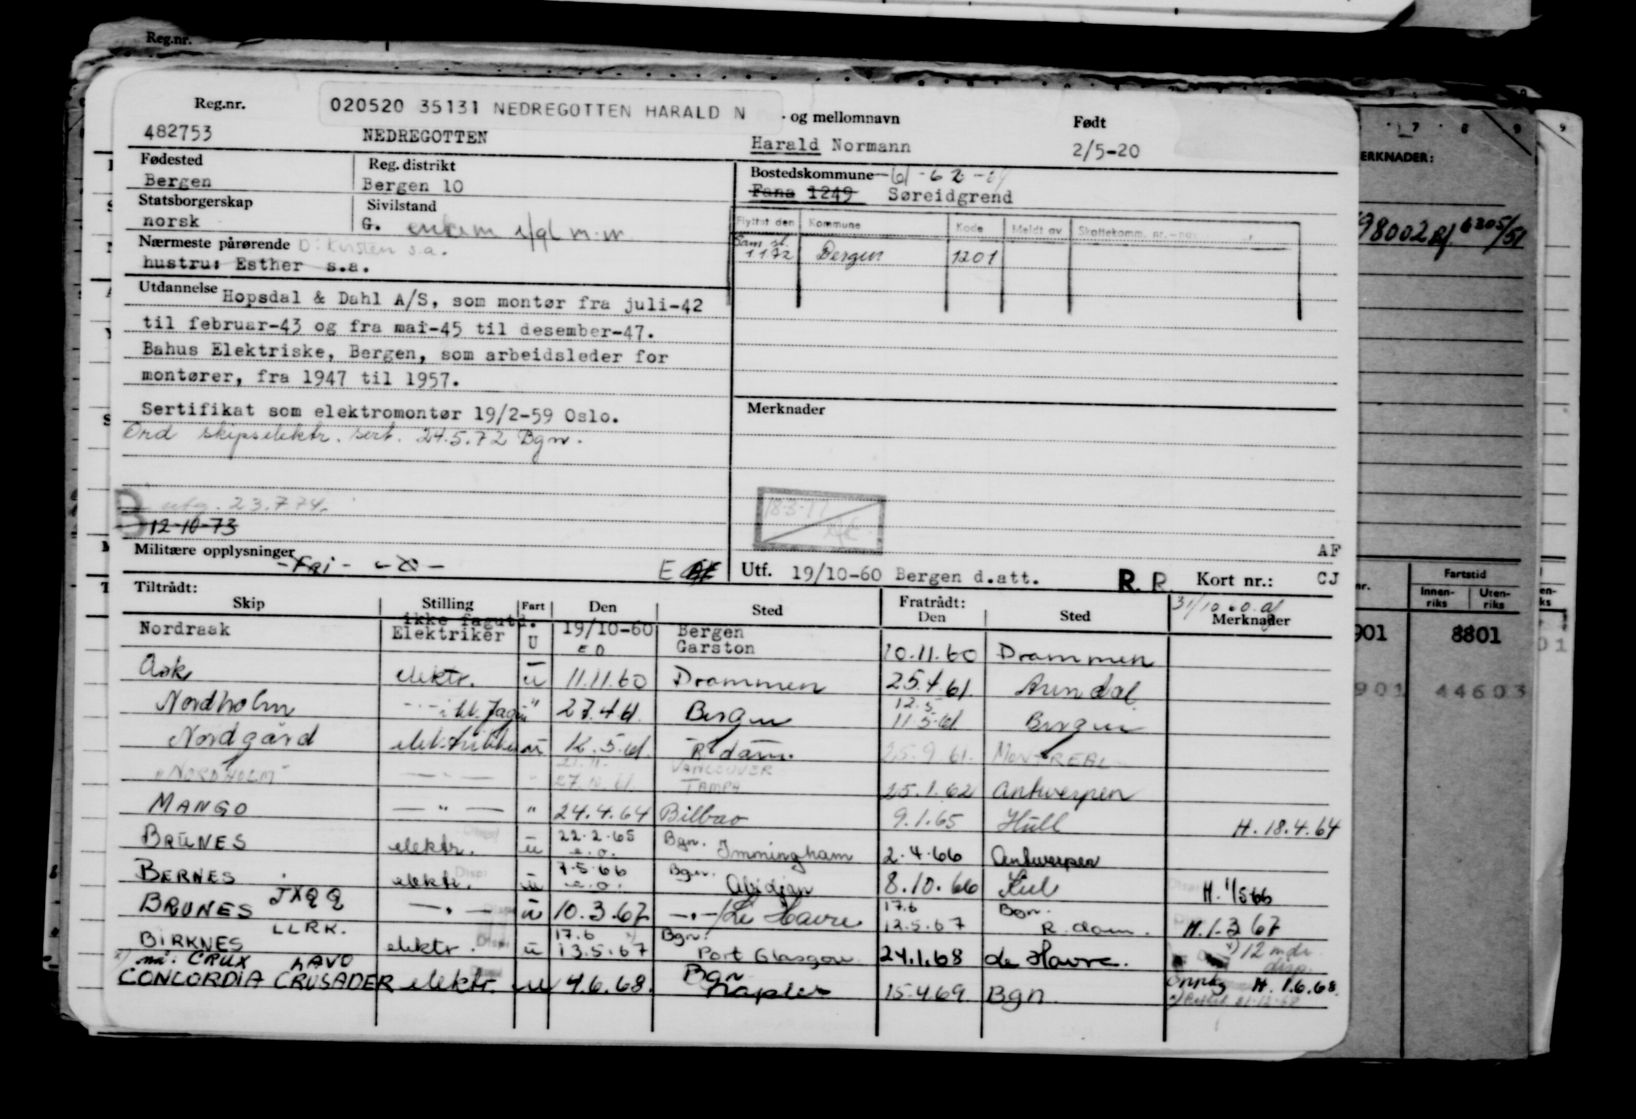 Reg.nr.
Reg.nr.
020520 35131 NEDREGOTTEN HARALD N
og mellomnavn
Født
482753 NEDREGOTTEN
Harald Normann
2/5-20
Fødested
Reg. distrikt
Bostedskommune
Bergen
Bergen 10
Fana 1249 Søreidgrend
Statsborgerskap
Sivilstand
norsk
G.
Flyttet den Kommune Kode Meldt av Skattekomm. nr.
Nærmeste pårørende D: Kirsten s.a.
hustru: Esther s.a.
1172 Bergen 1201
Utdannelse Hopsdal & Dahl A/S, som montør fra juli-42
til februar-43 og fra mai-45 til desember-47.
Bahus Elektriske, Bergen, som arbeidsleder for
montører, fra 1947 til 1957.
Merknader
Sertifikat som elektromontør 19/2-59 Oslo.
Ord skipselektr. sert. 24.5.72 Bgn.
utg. 23.7.74.
12-10-73
Militære opplysninger
E
Utf. 19/10-60 Bergen d.att.
R. R.
Kort nr.:
AF
CJ
Tiltrådt:
Fratrådt:
Skip Stilling Fart Den Sted Den Sted Merknader
ikke fagutd.
Nordraak Elektriker U 19/10-60 Bergen
Garston 10.11.60 Drammen
Ask elektr. u 11.11.60 Drammen 25.4.61. Arendal
12.5
Nordholm " 27.4.61. Bergen 11.5.61. Bergen
Nordgård u 12.5.61. R.dam. 25.9.61. MONTREAL
VANCOUVER
"NORDHOLM" " 27.10.61. TAMPA 25.1.62 Antwerpen
MANGO — " — " 24.4.64 Bilbao 9.1.65 Hull H. 18.4.64
BRUNES elektr. u 22.2.65 Bgn. Immingham 2.4.66 Antwerpen
e.o.
BERNES elektr. u 7.5.66 Bgn. Abidjan 8.10.66 Kiel H. 1/5 66
e.o.
BRUNES JXQQ — " — u 10.3.67 — " — / Le Havre 17.6 Bgn.
12.5.67 R.dam. H. 1.3 67
LLRK.
BIRKNES elektr. u 17.6 Bgn.
13.5.67 Port Glasgow 24.1.68 de Havre. 12 mdr. disp.
nå: CRUX LAVO
CONCORDIA CRUSADER elektr. u 4.6.68. Bgn
Naples 15.4.69 Bgn H. 1.6.68.
7 8 9 9
MERKNADER:
98002
Fartstid
Innen-
riks
Uten-
riks
901 8801
901 44603
01